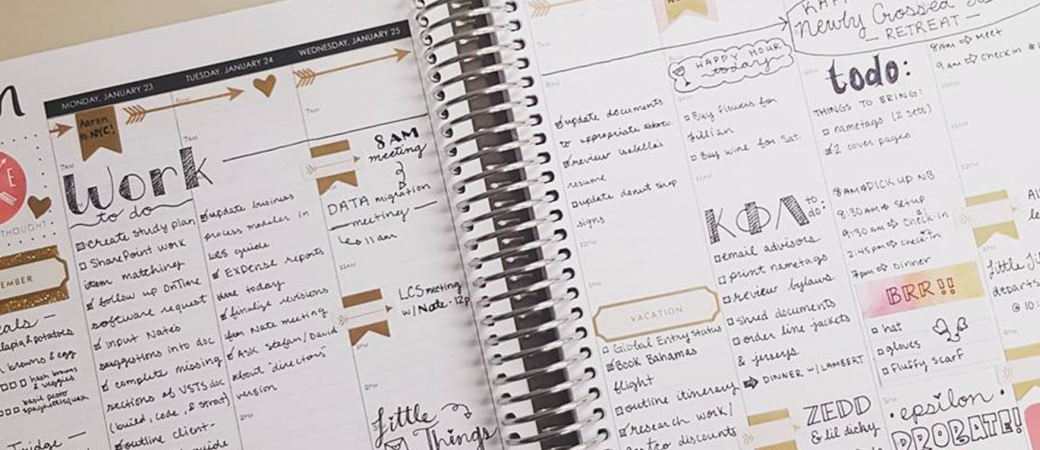 MONDAY, JANUARY 23
TUESDAY, JANUARY 24
WEDNESDAY, JANUARY 25
Aaron
NYC!
E
THOUGHT
EMBER
& potatoes
browns & egg
hash browns
& veggies
pesto
Fridge
Work
to do
create study plan
SharePoint work
item matching
follow up OnTime
software request
input Nates
suggestions into doc
complete missing
sections of VSTS doc
(build, code, & strat)
outline client-
guide
update business
process modeler in
guide
Expense reports
due today
finalize revisions
from Nate meeting
Ask Stefan/David
about "directors"
version
8 AM
meeting
DATA migration
meeting
11am
LCS meeting
w/Nate 12p
Little
Things
update documents
to appropriate
review
resume
update donut sup
signs
VACATION
Global Entry status
Book Bahamas
flight
outline itinerary
research work/
discounts
HAPPY HOUR
today
Buy flowers for
Jillian
Buy wine for Sat.
ΚΦΛ
to
do:
email advisors
print nametags
review bylaws
shred documents
order line jackets
& jerseys
DINNER w/LAMBERT
ZEDD
& lil dicky
Newly Crossed
RETREAT
todo:
THINGS TO BRING:
nametags (2 sets)
2 cover pages
8AM PICK UP NB
8:30AM Setup
9:30AM Check-in
2:45pm check in
7pm Dinner
BRR!!
hat
gloves
fluffy scarf
epsilon
PROBATE!
8am meet
9am check in
Little
departs
@ 10: